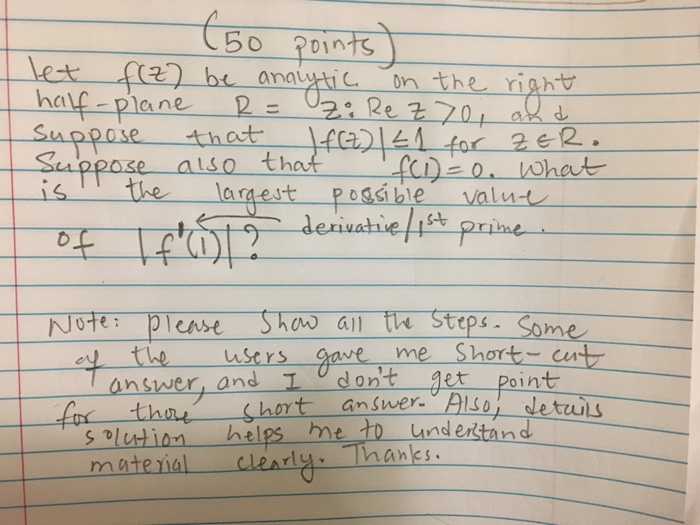 (50 points)
let f(z) be analytic on the right
half-plane R = z: Re z >0, and
suppose that |f(z)| ≤ 1 for z ∈ R.
Suppose also that f(1) = 0. What
is the largest possible value
of |f'(1)|? ← derivative/1st prime.
Note: please show all the steps. Some
of the users gave me short-cut
answer, and I don't get point
for those short answer. Also, details
solution helps me to understand
material clearly. Thanks.